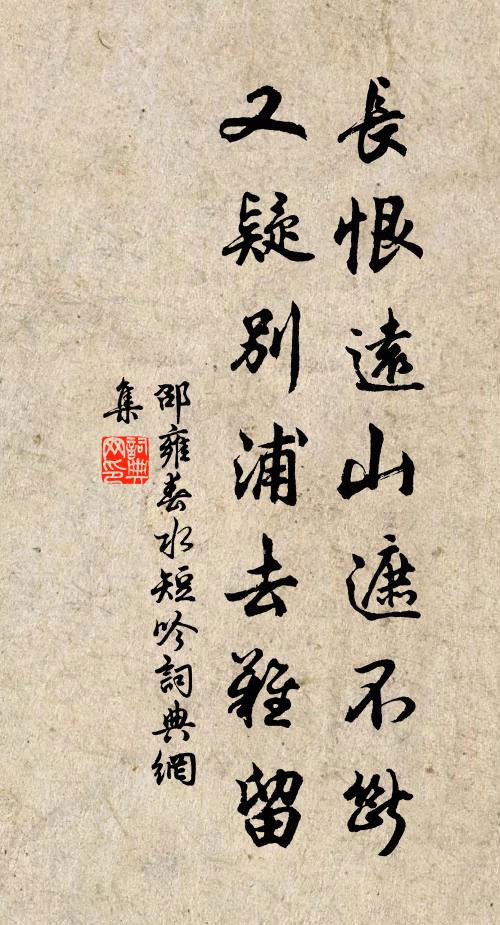 長恨遠山遮不斷
又疑別浦去難留
邵雍春水短吟詞典網
集
詞典
网印